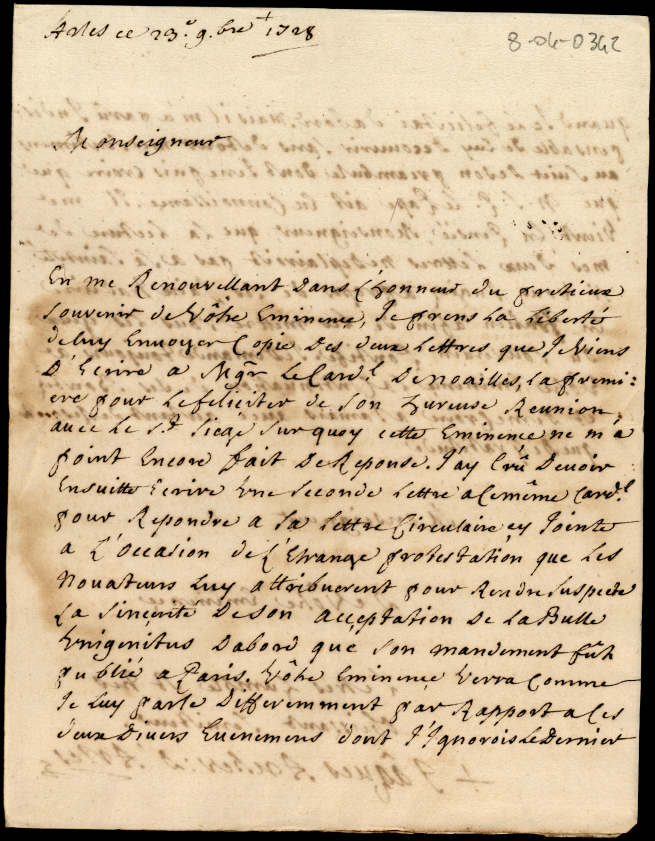 Arles ce 23.e 9.bre 1728
8-04-0342
Monseigneur
En me Renouvellant dans l'honneur du pretieux
souvenir de Vôtre Eminence, Je prens la liberté
de luy Envoyer Copie des deux lettres que Je Viens
D'Ecrire a Mgr le Card.l Denoailles, la premi:
ere pour le feliciter de son hureuse Reunion,
avec le S.t Siege sur quoy cette Eminence ne m'a
point Encore fait De Reponse. J'ay Crû Devoir
Ensuitte Ecrire Une seconde lettre a Ce même Card.l
pour Repondre a sa lettre Circulaire cy Jointe
a L'Occasion de L'Etrange protestation que les
Novateurs luy attribuerent pour Rendre suspecte
la sincerité De son acceptation De la Bulle
Unigenitus Dabord que son mandement fût
publié a Paris. Vôtre Eminence Verra Comme
Je luy parle Differemment par Rapport a Ces
deux Divers Evenemens dont J'Ignorois le Dernier